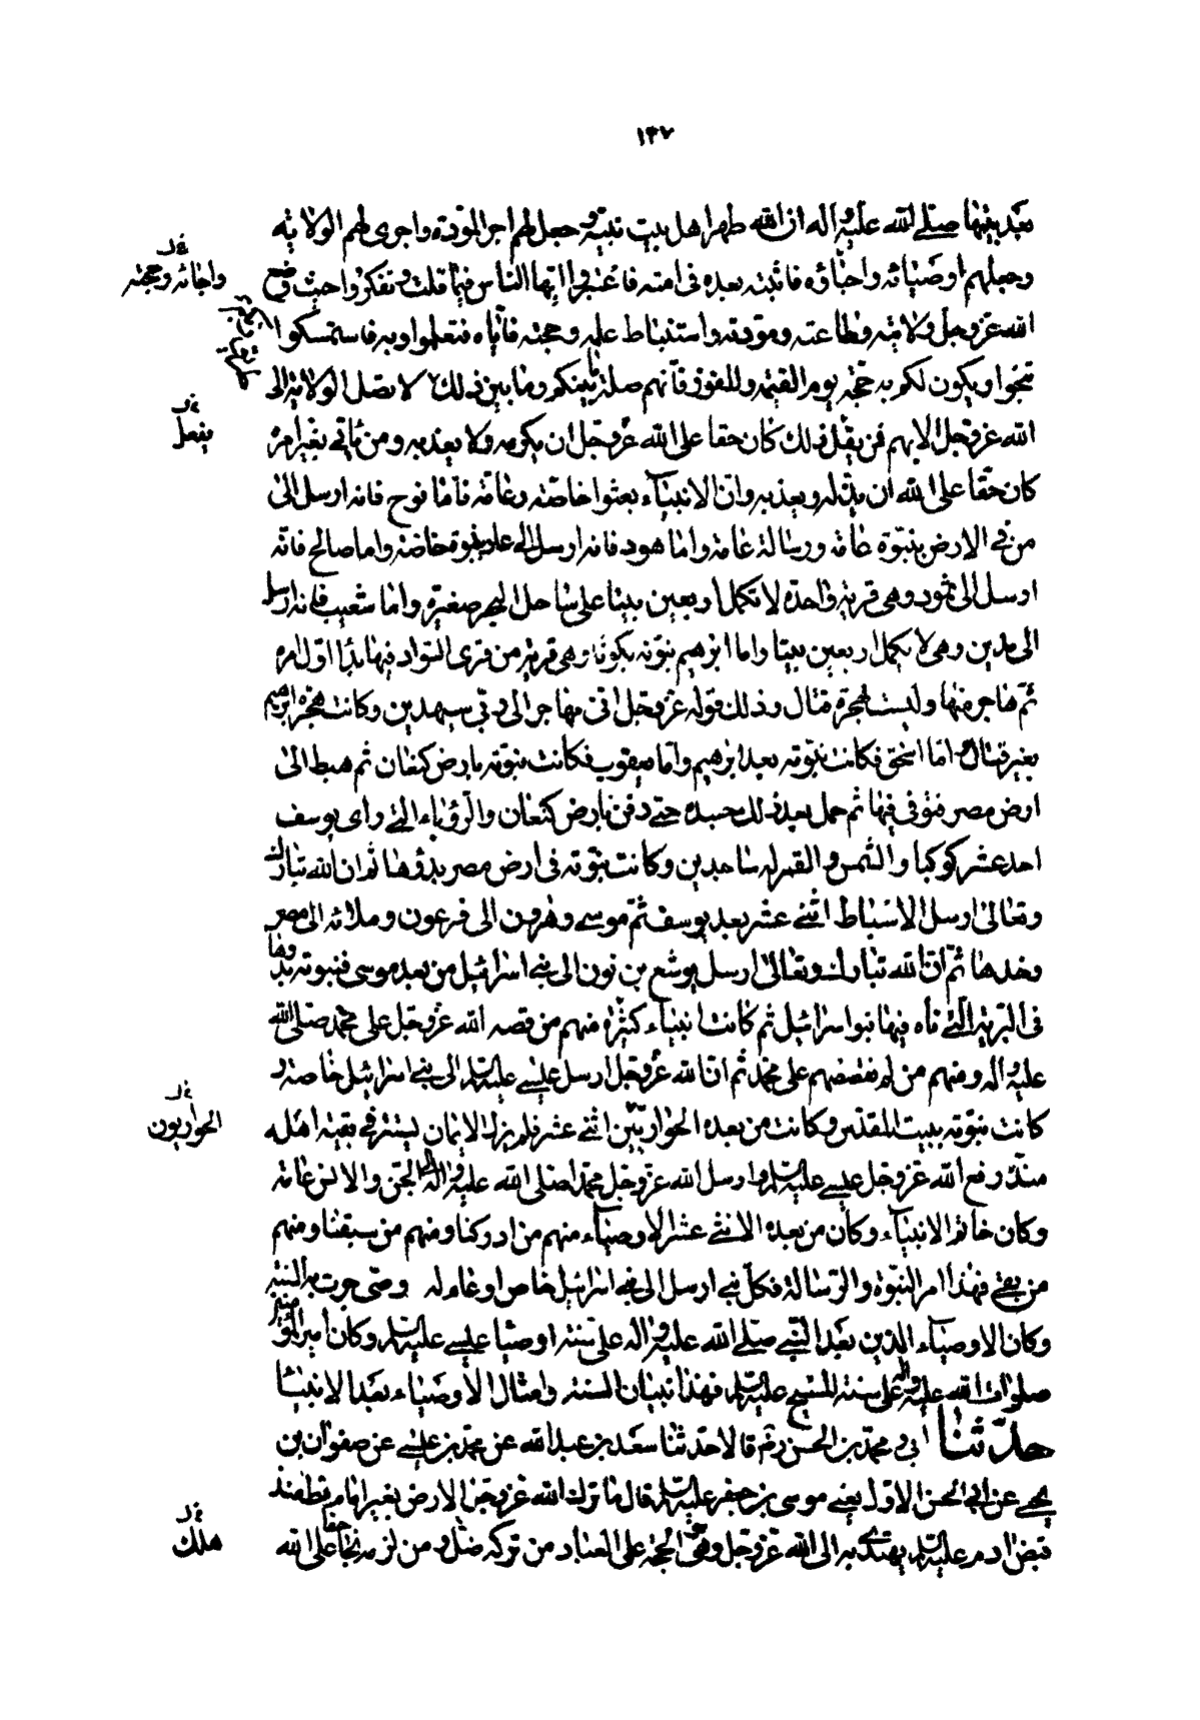 ١٣٧
بعد نبيها صلى الله عليه واله ان الله طهر اهل بيت نبيه وجعل لهم اجر المودة واجرى لهم الولاية
وجعلهم اوصيائه واحباؤه فاثبته بعده فى امته فاعتبروا ايها الناس فيما قلت وتفكروا حيث وضع
الله عز وجل ولايته وطاعته ومودته واستنباط علمه وحجته فاياه فتعلموا وبه فاستمسكوا
تنجوا ويكون لكم به حجة يوم القيمة والفوز فانهم صلة بينكم وما بين ذلك لا تصل الولاية الى
الله عز وجل الا بهم فمن يقبل ذلك كان حقا على الله عز وجل ان يكرمه ولا يعذبه ومن ياتى بغير امره
كان حقا على الله ان يذله ويعذبه وان الانبياء بعثوا خاصة وعامة فاما نوح فانه ارسل الى
من فى الارض بنبوة عامة ورسالة عامة واما هود فانه ارسل الى عاد بنبوة خاصة واما صالح فانه
ارسل الى ثمود وهى قرية واحدة لا تكمل اربعين بيتا على ساحل البحر صغيرة واما شعيب فانه ارسل
الى مدين وهى لا يكمل اربعين بيتا واما ابرهيم نبوته بكوثا وهى قرية من قرى السواد فيها بدا اول امره
ثم هاجر منها وليست لهجرة قتال وذلك قوله عز وجل انى مهاجر الى ربى سيهدين وكانت هجرة ابرهيم
بغير قتال اما اسحق فكانت نبوته بعد ابرهيم واما يعقوب فكانت نبوته بارض كنعان ثم هبط الى
ارض مصر فتوفى فيها ثم حمل بعد ذلك جسده حتى دفن بارض كنعان والرؤياء التى راى يوسف
احد عشر كوكبا والشمس والقمر له ساجدين وكانت نبوته فى ارض مصر بدؤها ثم ان الله تبارك
وتعالى ارسل الاسباط اثنى عشر بعد يوسف ثم موسى وهرون الى فرعون وملائه الى مصر
وحدها ثم ان الله تبارك وتعالى ارسل يوشع بن نون الى بنى اسرائيل من بعد موسى فنبوته بدوها
فى البرية التى تاه فيها بنوا سرائيل ثم كانت انبياء كثيرة منهم من قصه الله عز وجل على محمد صلى الله
عليه واله ومنهم من لم نقصصهم على محمد ثم ان الله عز وجل ارسل عيسى عليه السلام الى بنى اسرائيل خاصة و
كانت نبوته ببيت المقدس وكانت من بعده الحواريين اثنى عشر فلم يزل الايمان يستتر فى بقية اهله
منذ رفع الله عز وجل عيسى عليه السلام وارسل الله عز وجل محمدا صلى الله عليه واله الى الجن والانس عامة
وكان خاتم الانبياء وكان من بعده الاثنى عشر الاوصياء منهم من ادركنا ومنهم من سبقنا ومنهم
من بقى فهذا امر النبوة والرسالة فكل نبى ارسل الى بنى اسرائيل خاص او عام له وصى جرت به السنة
وكان الاوصياء الذين بعد النبى صلى الله عليه واله على سنة اوصيا عيسى عليه السلام وكان امير المؤمنين
صلوات الله عليه واله على سنة المسيح عليه السلام فهذا تبيان السنة وامثال الاوصياء بعد الانبياء
حدثنا ابى ومحمد بن الحسن رض قالا حدثنا سعد بن عبد الله عن محمد بن عيسى عن صفوان بن
يحيى عن ابى الحسن الاول يعنى موسى بن جعفر عليه السلام قال ما ترك الله عز وجل الارض بغير امام قط منذ
قبض ادم عليه السلام يهتدى به الى الله عز وجل وهو الحجة على العباد من تركه ضل ومن لزمه نجا حقا على الله
واجائه وحجته
يفعل
الحواريون
هلك